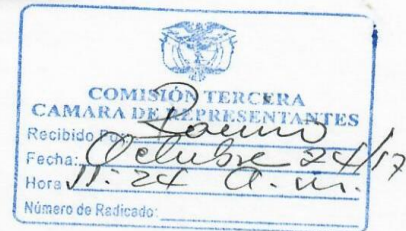 COMISIÓN TERCERA
CAMARA DE REPRESENTANTES
Recibido Por:
Fecha: Octubre 24/17
Hora 11:24 a.m.
Número de Radicado: